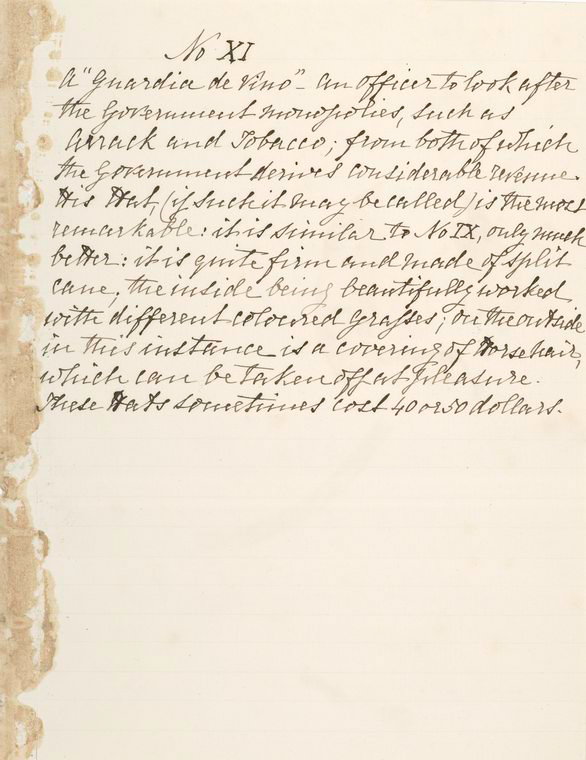 No XI
A "Guardia de Vino" - an officer to look after
the Government monopolies, such as
Arrack and Tobacco; from both of which
the Government derives considerable revenue.
His Hat, (if such it may be called) is the most
remarkable: it is similar to No IX, only much
better: it is quite firm and made of split
cane, the inside being beautifully worked
with different coloured Grasses; on the outside
in this instance is a covering of Horsehair,
which can be taken off at pleasure.
These Hats sometimes cost 40 or 50 dollars.